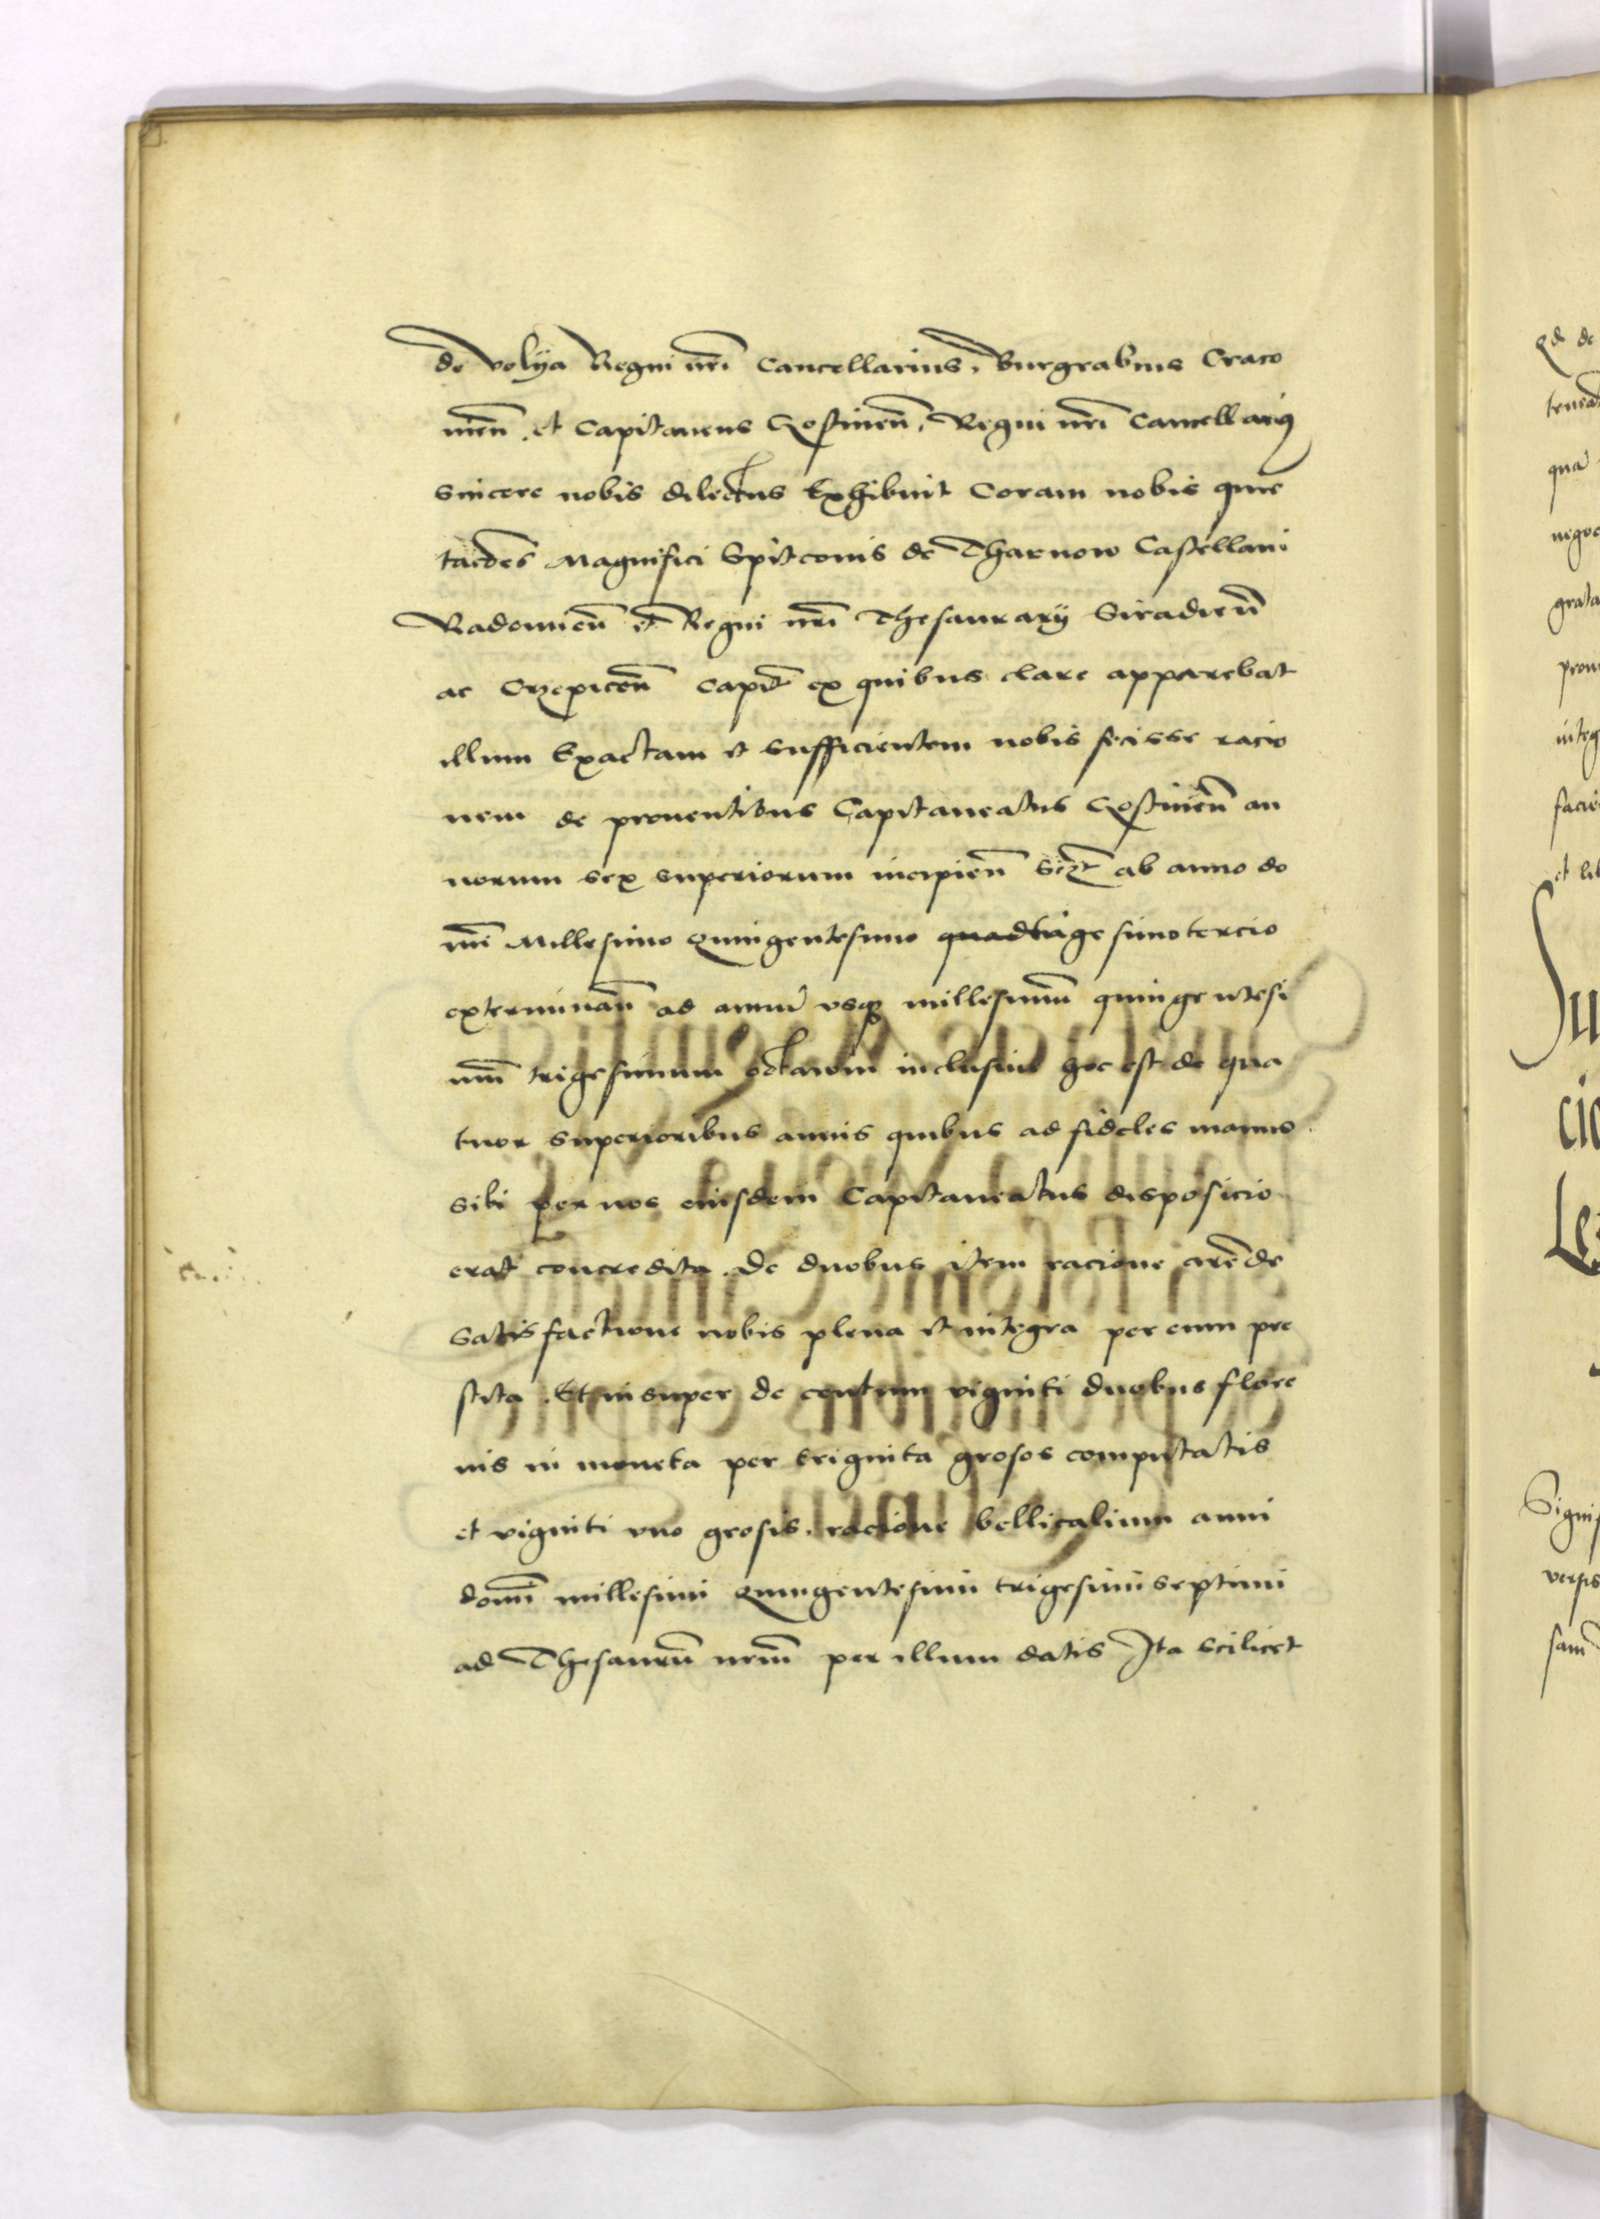 de Volÿa Regni nrī Cancellarius, Burgrabius Craco
nieñ. et Capitaneus Gostineñ, Regni nrī Cancellariꝰ
Sincere nobis dilectus Exhibuit Coram nobis quie
tac̄oes Magnifici Spitconis de Tharnow Castellani
Radomieñ et Regni nrī Thesaurarÿ Siradieñ
ac Crzepiceñ Capit̄ ex quibus clare apparebat
illum Exactam et sufficientem nobis fecisse racio
nem de prouentibus Capitaneatus Gostineñ an
norum sex superiorum incipieñ ab anno do
mi Millesimo Quingentesimo simotercio
exterminan̄ ad annū vsqꝫ millesimum quingentesi
mū trigesimum octauum inclusiue hoc est de qua
tuor superioribus annis quibus ad fideles manus
sibi per nos eiusdem Capitaneatus disposicio
erat concredita. De duobus item racione arēde
Satisfactione nobis plena et integra per eum pre
stita. Et insuper de centum viginti duobus flore
nis in moneta per triginta grosos computatis
et viginti vno grosis, racione bellicalium anni
domī millesimi Quingentesimi trigesimi septimi
ad Thesaurū nrm̄ per illum datis Ita scilicet